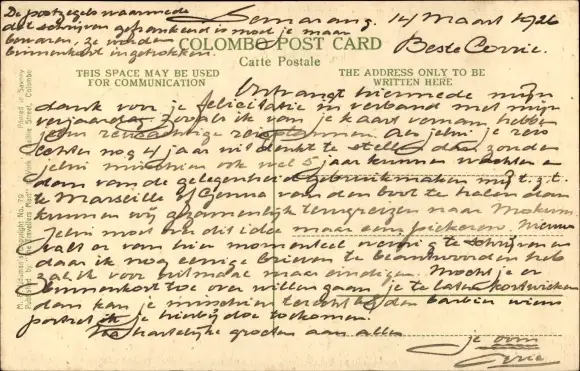 De postzegels waarmede
dit schrijven gefrankeerd is moet je maar
bewaren, ze worden
binnenkort ingetrokken.
Semarang. 14 Maart 1926
COLOMBO POST CARD
Carte Postale
Beste Corrie.
THIS SPACE MAY BE USED
FOR COMMUNICATION
THE ADDRESS ONLY TO BE
WRITTEN HERE
Ontvangt hiermede mijn
dank voor je felicitatie in verband met mijn
verjaardag. Zooals ik van je kaart vernam hebben
jelui reisachtige Als jelui je reis
echter nog 4 jaar uit denkt te stellen dan zouden
jelui misschien ook wel 5 jaar kunnen wachten en
dan van de gelegenheid gebruikmaken mij t.z.t.
te Marseille of Genua van den boot te halen dan
kunnen wij gezamenlijk terugreizen naar Mokum.
Jelui moet over dit idee maar eens Nieuws
valt er van hier momenteel weinig te schrijven en
daar ik nog eenige brieven te beantwoorden heb
zal ik voor ditmaal maar eindigen. Mocht je er
binnenkort toe over willen gaan je te laten kortwieken
dan kan je misschien terecht bij den barbier wiens
portret ik je hierbij doe toekomen.
Na hartelijke groeten aan allen
je oom